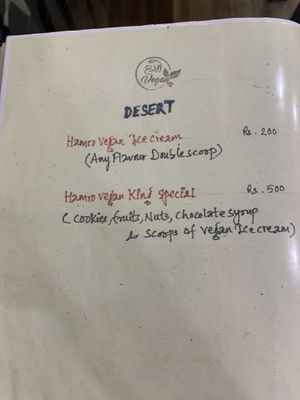 हाम्रो
Vegan
DESERT
Hamro Vegan Ice cream Rs. 200
(Any Flavour Double scoop)
Hamro Vegan King Special Rs. 500
( Cookies, fruits, Nuts, Chocolate syrup
& Scoops of Vegan Ice cream)